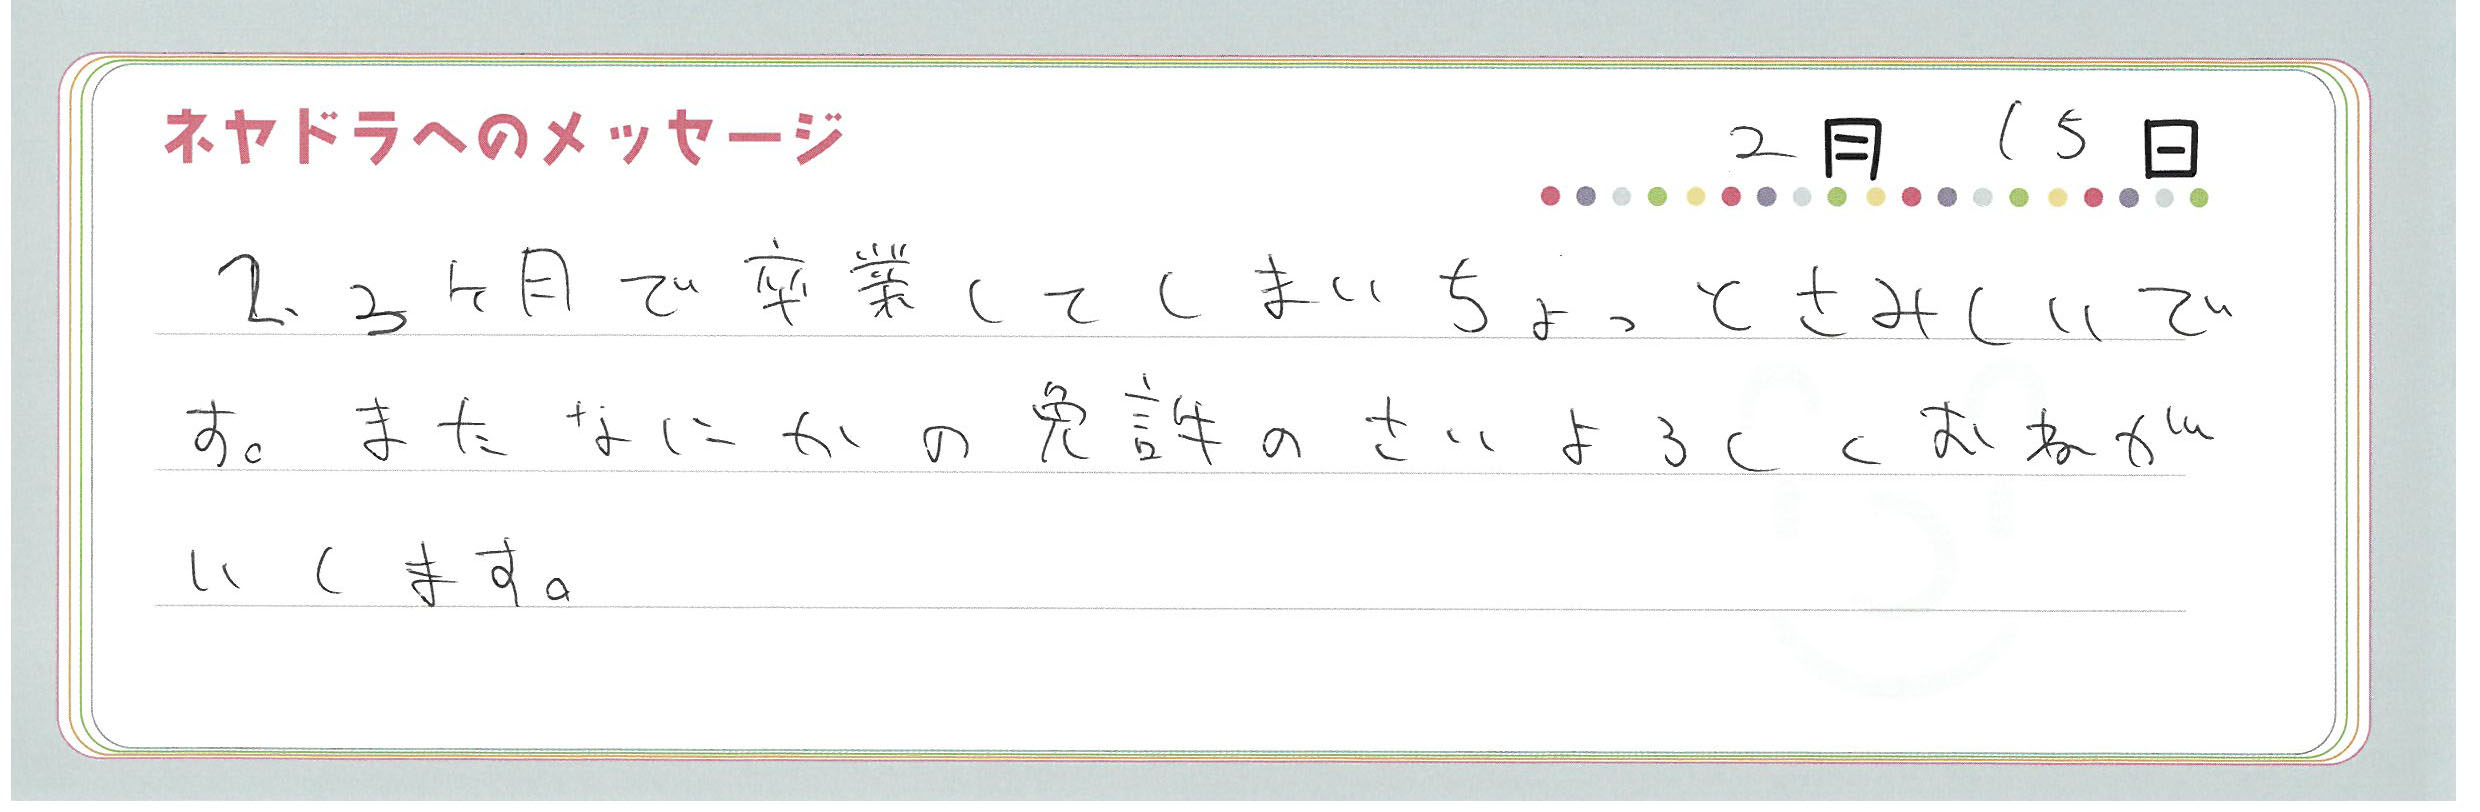 ネヤドラへのメッセージ
2月 15日
2、3ヶ月で卒業してしまいちょっとさみしいで
す。またなにかの免許のさいよろしくおねが
いします。